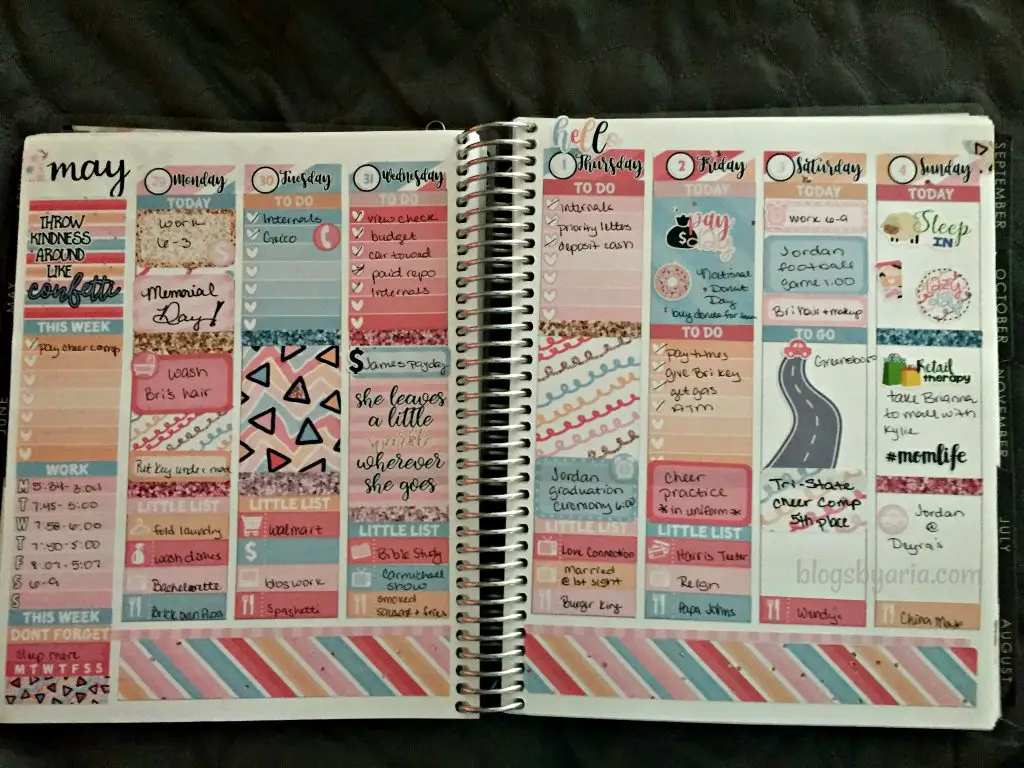 hello
may
THROW
KINDNESS
AROUND
LIKE
confetti
THIS WEEK
pay cheer comp
WORK
M 5:34-3:04
T 7:45-5:00
W 7:58-6:00
T 7:50-5:00
F 8:07-5:07
S 6-9
S
THIS WEEK
DONT FORGET
Sleep more
M T W T F S S
29 Monday
TODAY
Work
6-3
Memorial
Day!
wash
Bri's hair
Put key under mat
LITTLE LIST
fold laundry
wash dishes
Bachelorette
Brick oven Pizza
30 Tuesday
TO DO
Internals
Geico
LITTLE LIST
walmart
$
blog work
Spaghetti
31 Wednesday
TO DO
view check
budget
car towed
paid repo
Internals
$
James Payday
she leaves
a little
sparkle
wherever
she goes
LITTLE LIST
Bible Study
Carmichael
show
smoked
sausage + fries
1 Thursday
TO DO
internals
priority letters
deposit cash
Jordan
graduation
ceremony 6:00
LITTLE LIST
Love Connection
Married
@ 1st sight
Burger King
2 Friday
TODAY
$
pay
day
National
Donut
Day
buy donuts for
TO DO
pay tithes
give Bri key
get gas
ATM
cheer
practice
* in uniform *
LITTLE LIST
Harris Teeter
Reign
Papa Johns
3 Saturday
TODAY
work 6-9
Jordan
football
game 1:00
Bri hair + makeup
TO GO
Greensboro
Tri-State
cheer comp
5th place
Wendy's
4 Sunday
TODAY
Sleep
IN
lazy
day
Retail
therapy
take Brianna
to mall with
Kylie
#momlife
Jordan
@
China Max
blogsbyaria.com
MAY
JUNE
SEPTEMBER
OCTOBER
NOVEMBER
JULY
AUGUST